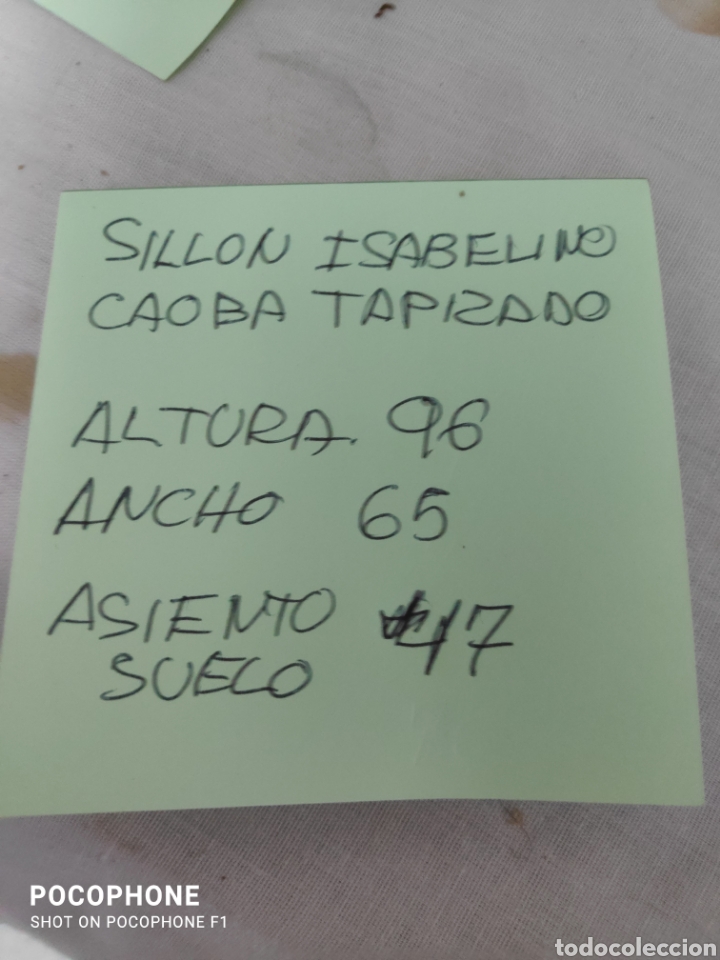 SILLON ISABELINO
CAOBA TAPIZADO
ALTURA. 96
ANCHO 65
ASIENTO 47
SUELO
POCOPHONE
SHOT ON POCOPHONE F1
todocoleccion